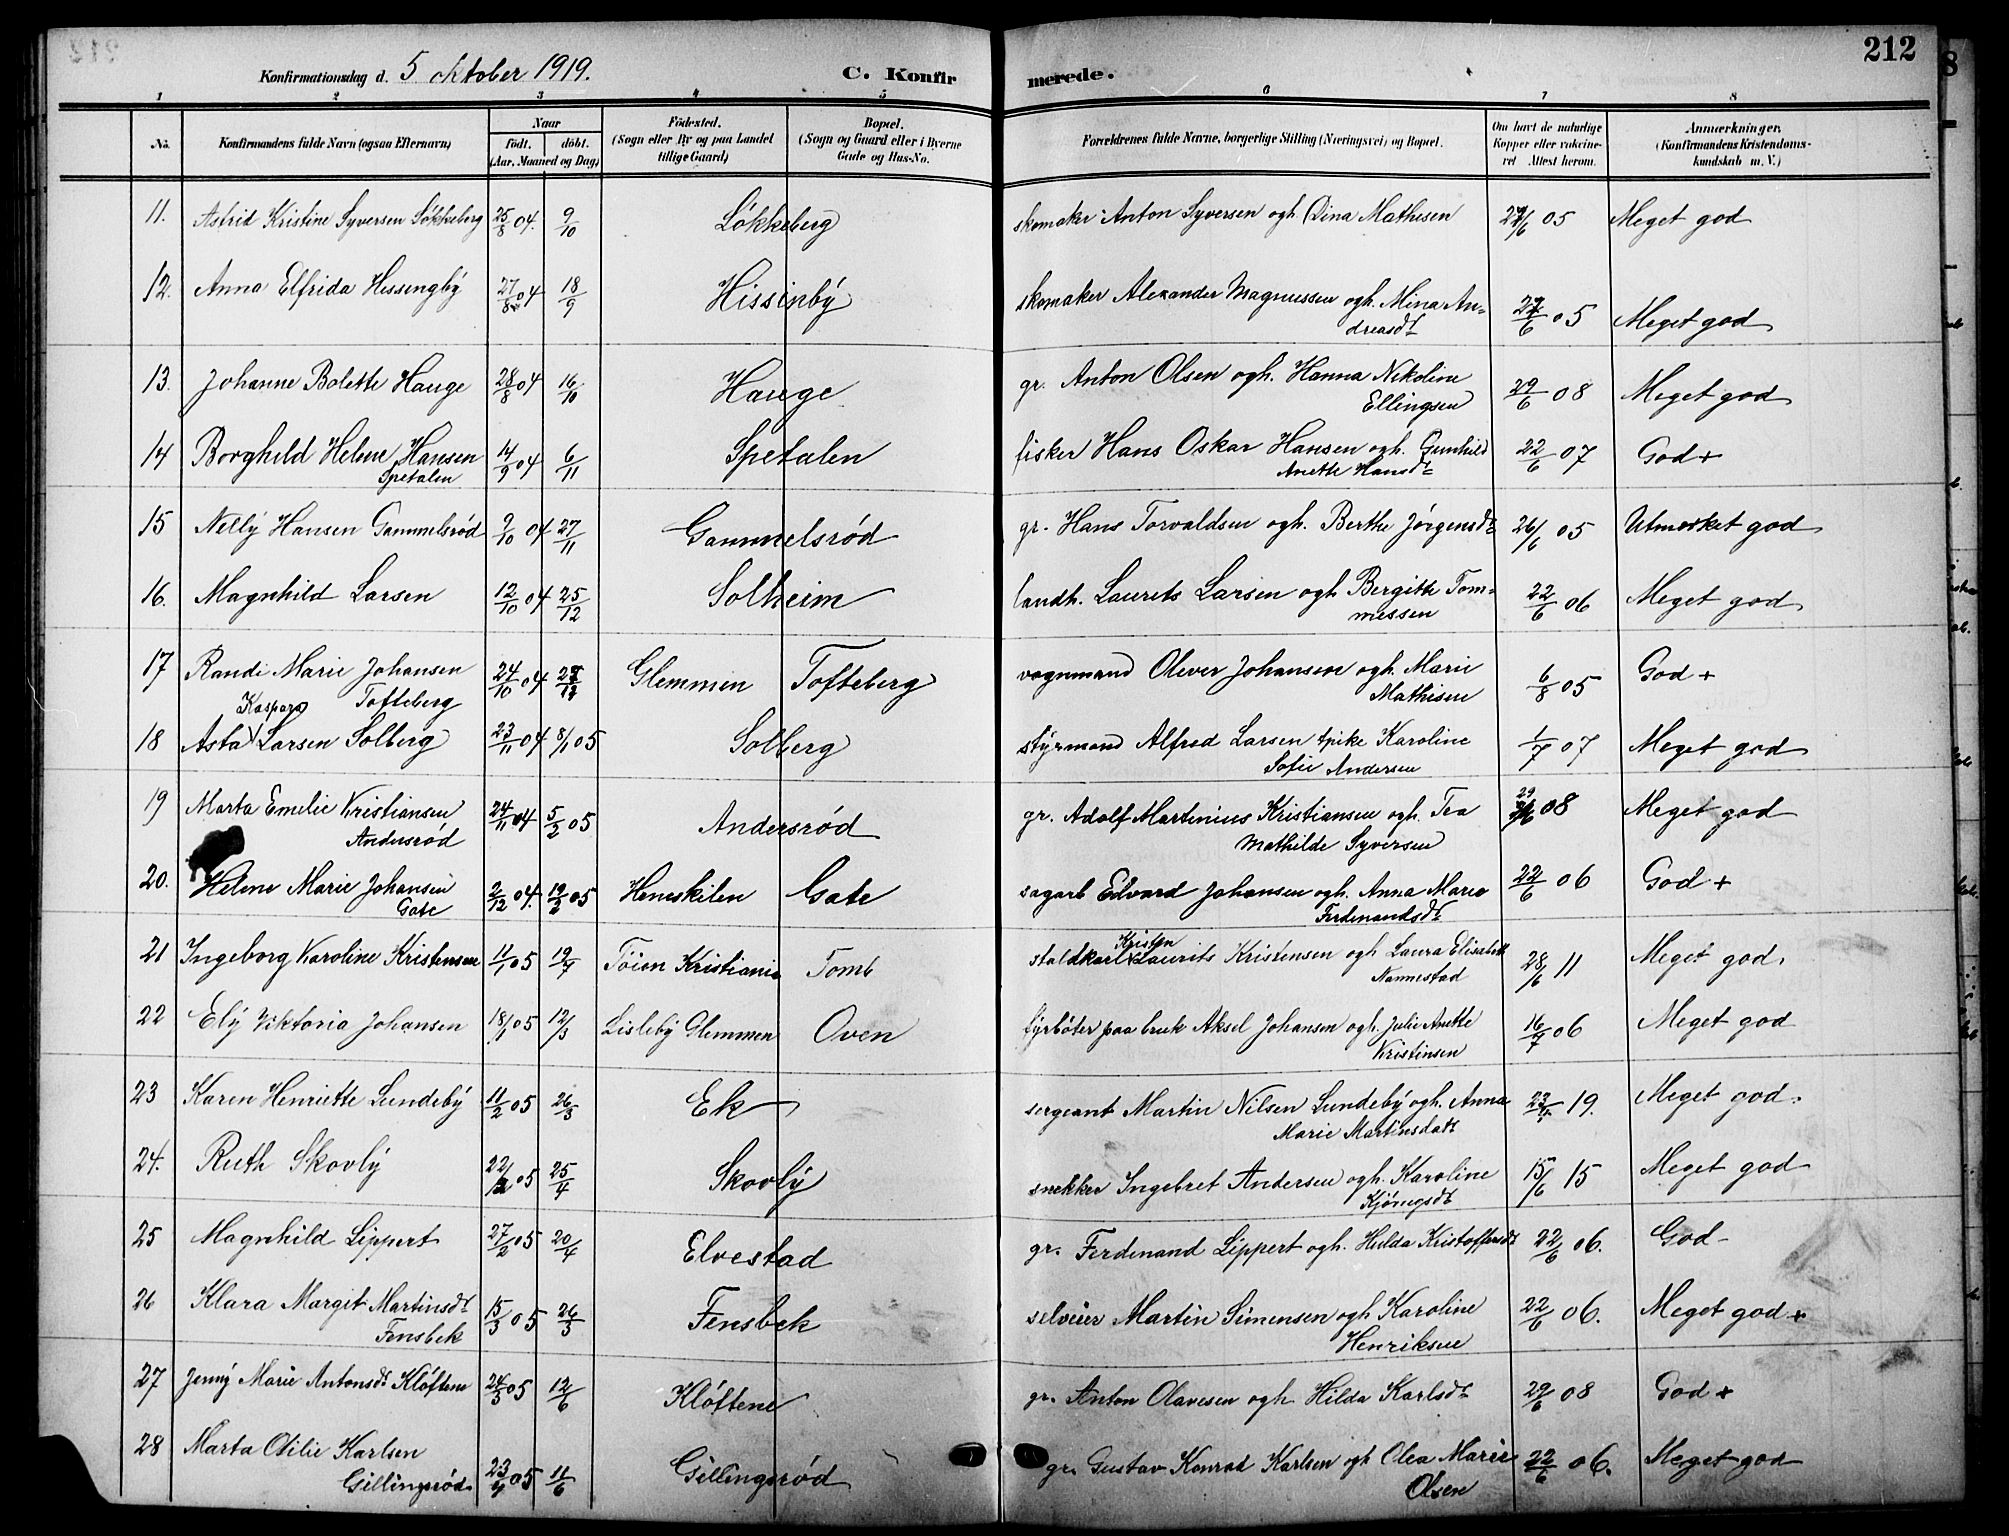 212
Konfirmationsdag d. 5 oktober 1919. C. Konfirmerede.
1 2 3 4 5 6 7 8
No. Konfirmandens fulde Navn (ogsaa Efternavn) Naar født. døbt. (Aar, Maaned og Dag) Fødested. (Sogn eller By og paa Landet tillige Gaard) Bopæl. (Sogn og Gaard eller i Byerne Gade og Hus-No. Forældrenes fulde Navne, borgerlige Stilling (Næringsvei) og Bopæl. Om havt de naturlige Kopper eller vakcineret Attest herom. Anmærkninger. (Konfirmandens Kristendomskundskab m. V.)
11. Astrid Kristine Syversen Løkkeberg 25/8 04. 9/10 Løkkeberg skomaker Anton Syversen ogh. Dina Mathisen /6 05 Meget god
12. Anna Elfrida Hissingby 27/8 04 18/9 Hissinby skomaker Alexander Magnussen ogh. Mina An=
dreasdt /6 05 Meget god
13. Johanne Bolette Hauge 28/8 04 16/10 Hauge gr. Anton Olsen ogh. Hanna Nikoline
Ellingsen 29/6 08 Meget god
14 Borghild Helene Hansen 14/9 04 6/11 Spetalen fisker Hans Oskar Hansen ogh. Gunhild 22/6 07 God +
Spetalen Anette Hansdt
15 Nelly Hansen Gammelsrød 9/10 04 27/11 Gammelsrød gr. Hans Torvaldsen ogh. Berthe Jørgensdt 26/6 05 Utmerket god
16. Magnhild Larsen 12/10 04 25/12 Solheim landh. Laurits Larsen ogh Bergitte Tom=
messen 22/6 06 Meget god
17 Randi Marie Johansen 24/10 04 Glemmen Tofteberg vognmand Oliver Johansen ogh. Marie 6/8 05 God +
Tofteberg Mathisen
Kaspara
18 Asta Larsen Solberg 23/11 04 8/1 05 Solberg styrmand Alfred Larsen + pike Karoline 1/7 07 Meget god
Sofie Andersen
19 Marta Emelie Kristiansen 24/11 04 5/2 05 Andersrød gr. Adolf Martinius Kristiansen ogh. Tea 29/6 08 Meget god
Andersrød Mathilde Syversen
20. Helene Marie Johansen 2/12 04. 19/2 05 Hemeskilen Gate sagarb Edvard Johansen ogh. Anna Maria 22/6 06 God +
Gate Ferdinandsdt
Kristen
21 Ingeborg Karoline Kristensen 11/1 05 19/7 Tøien Kristiania Tomb staldkarl Laurits Kristensen ogh Laura Elisabeth 28/6 11 Meget god.
Nannestad
22 Ely Viktoria Johansen 18/1 05 12/3 Lisleby Glemmen Oven fyrbøter paa bruk Aksel Johansen ogh. Julie Anette 16/7 06 Meget god
Kristinsen
23 Karen Henriette Lundeby 11/2 05 26/3 Ek sergeant Martin Nilsen Lundeby ogh. Anna 19. Meget god.
Marie Martinsdatt
24. Ruth Skovly 22/2 05 25/4 Skovly snekker Ingebret Andersen ogh. Karoline 15/6 15 Meget god
Kjønigsdt
25 Magnhild Lippert 27/2 05 20/4 Elvestad gr. Ferdinand Lippert ogh. Hulda Kristoffersdt 22/6 06. God -
26 Klara Margit Martinsdt 15/3 05 26/3 Fensbek selveier Martin Simensen ogh Karoline 22/6 06. Meget god +
Fensbek Henriksen
27 Jenny Marie Antonsdt Kløftene 24/3 05 12/6 Kløftene gr. Anton Olavesen ogh Hilda Karlsdt 29/6 08 God +
28 Marta Otilie Karlsen Gillingsrød 23/4 05 11/6 Gillingsrød gr. Gustav Konrad Karlsen ogh Olea Marie 22/6 06. Meget god
Olsen